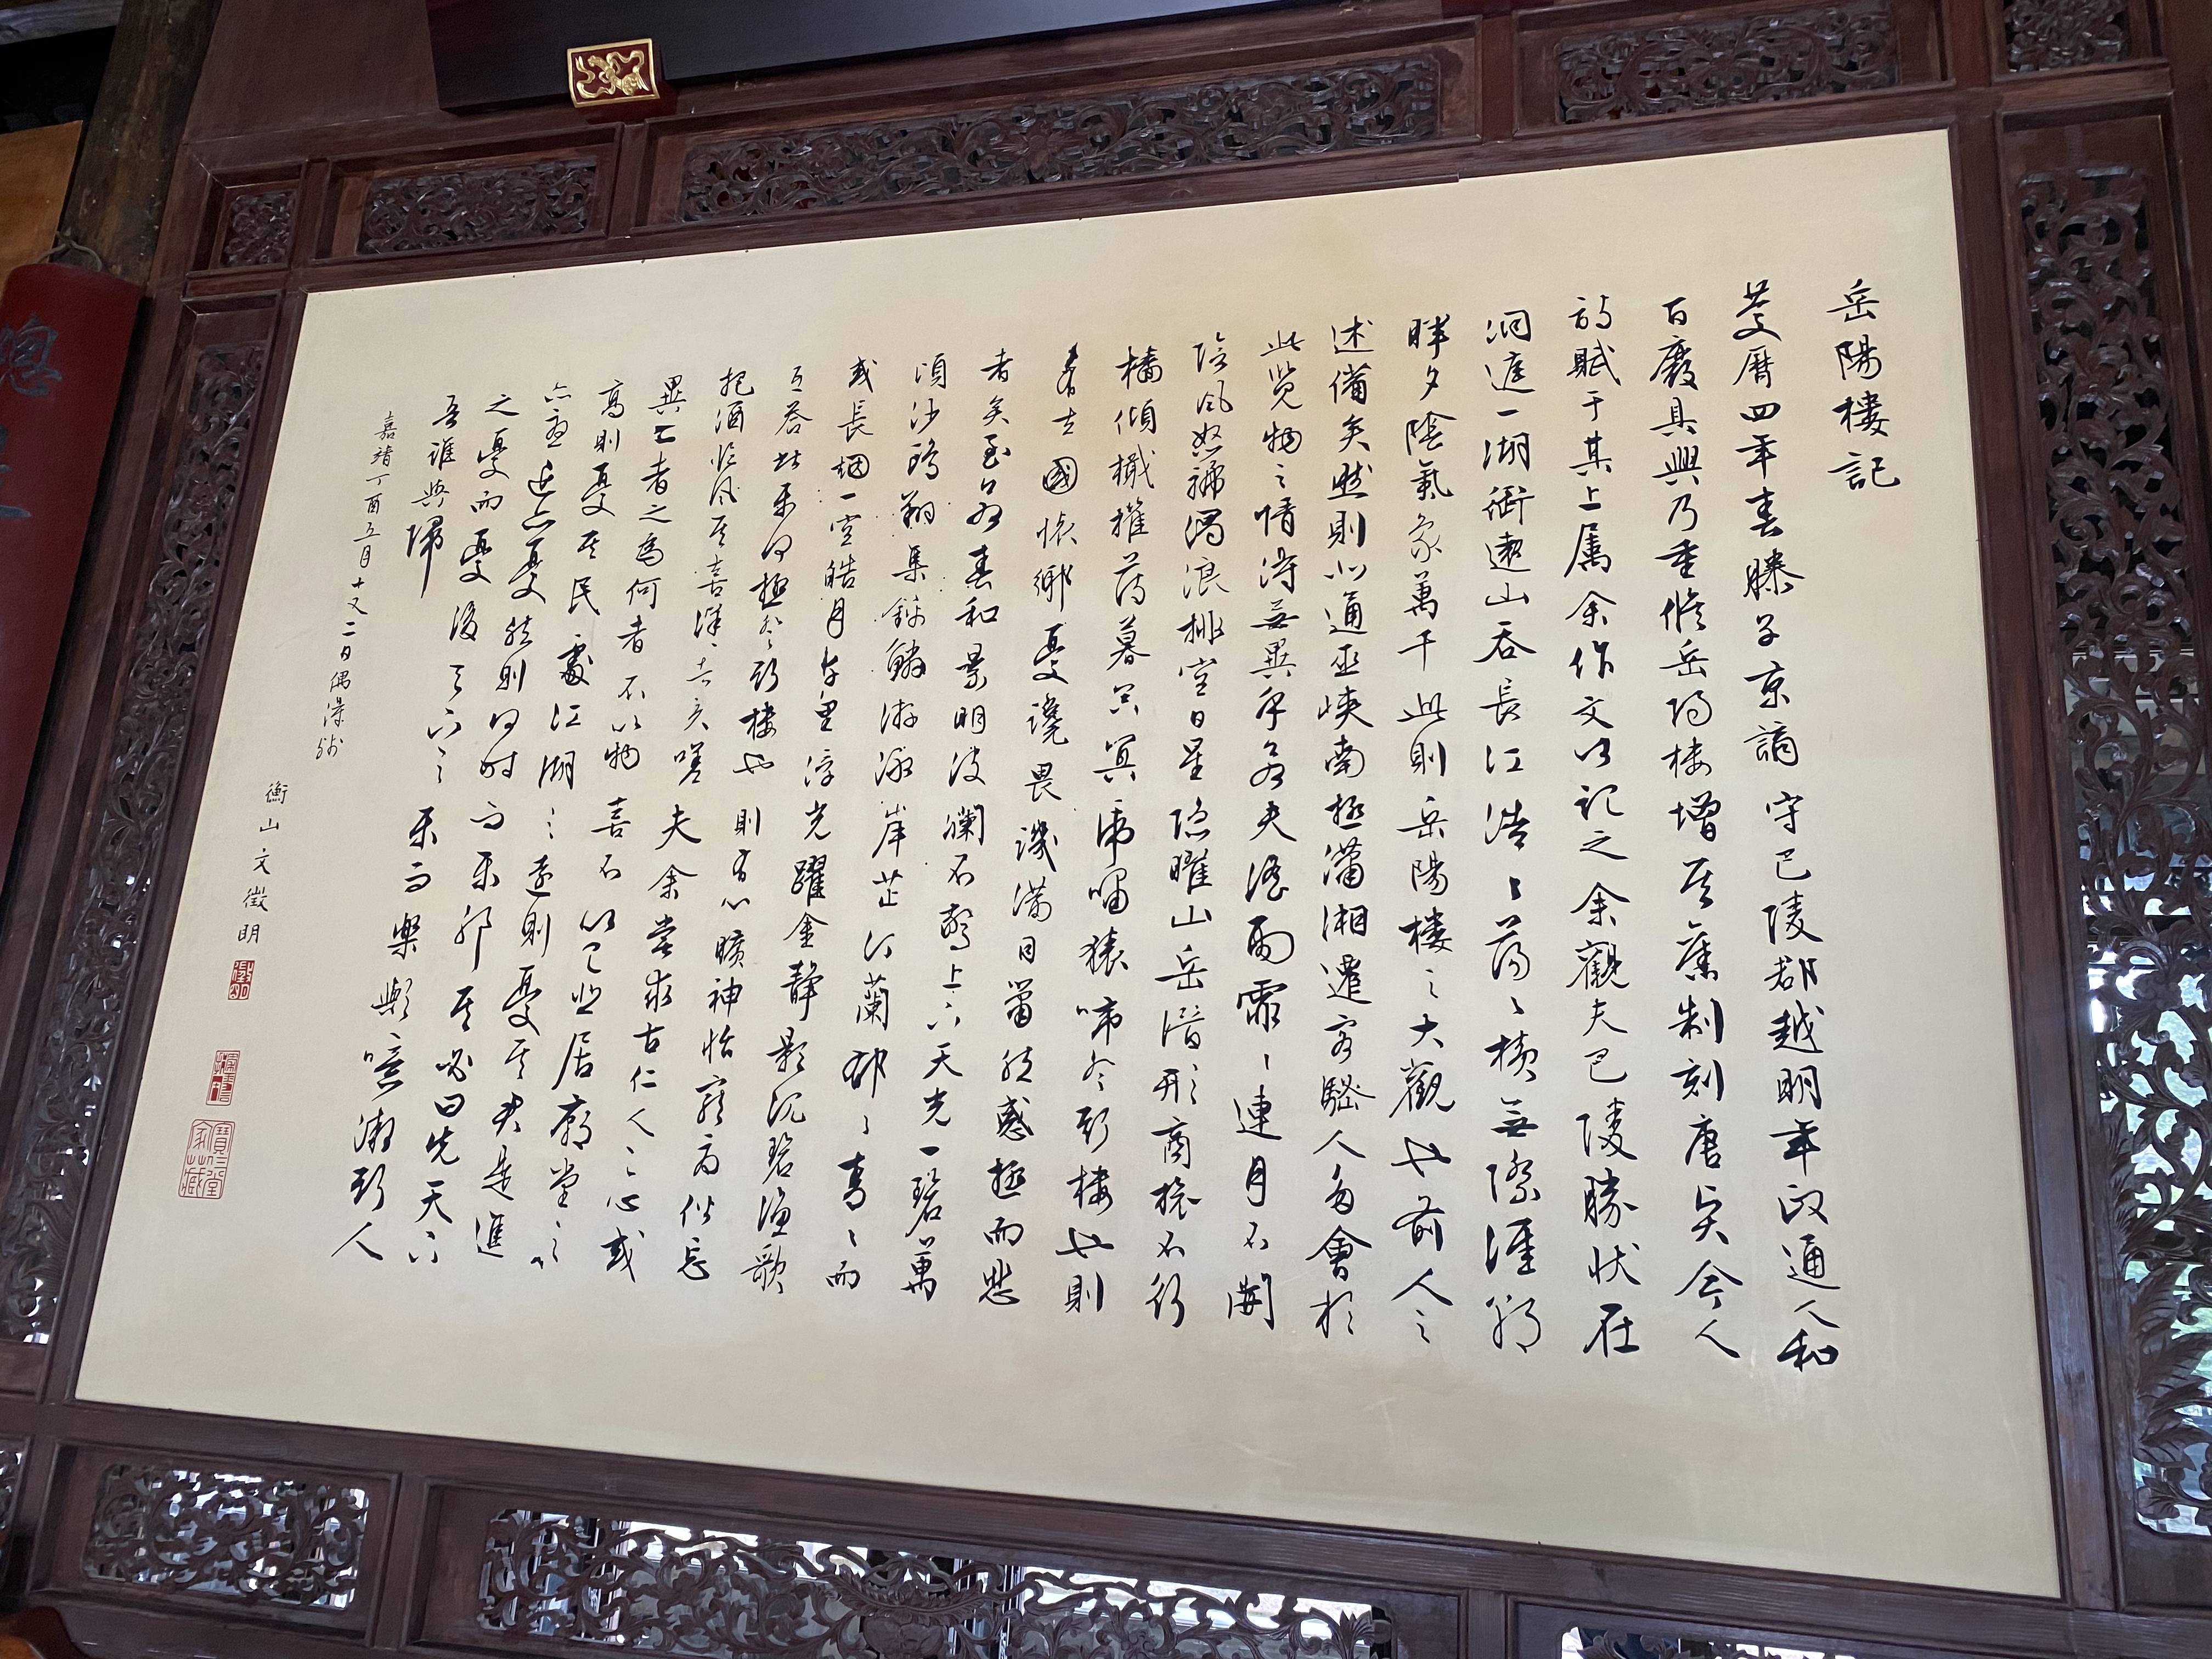 岳陽樓記
慶曆四年春滕子京謫守巴陵郡越明年政通人和
百廢具興乃重脩岳陽樓增其舊制刻唐賢今人
詩賦于其上屬余作文以記之余觀夫巴陵勝狀在
洞庭一湖銜遠山吞長江浩〻蕩〻橫無際涯朝
暉夕陰氣象萬千此則岳陽樓之大觀也前人之
述備矣然則北通巫峽南極瀟湘遷客騷人多會於
此覽物之情得無異乎若夫淫雨霏〻連月不開
陰風怒號濁浪排空日星隱曜山岳潛形商旅不行
檣傾檝摧薄暮冥冥虎嘯猿啼登斯樓也則
有去國懷鄉憂讒畏譏滿目蕭然感極而悲
者矣至若春和景明波瀾不驚上下天光一碧萬
頃沙鷗翔集錦鱗游泳岸芷汀蘭郁〻青〻而
或長烟一空皓月千里浮光躍金靜影沉碧漁歌
互答此樂何極登斯樓也則有心曠神怡寵辱偕忘
把酒臨風其喜洋〻者矣嗟夫余嘗求古仁人之心或
異二者之為何者不以物喜不以己悲居廟堂之
高則憂其民處江湖之遠則憂其君是進
亦憂退亦憂然則何時而樂耶其必曰先天下
之憂而憂後天下之樂而樂歟噫微斯人
吾誰與歸
嘉靖丁酉五月十又二日偶
衡山文徵明